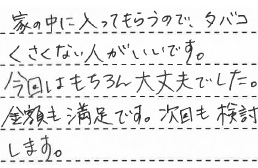 家の中に入ってもらうので、タバコ
くさくない人がいいです。
今回はもちろん大丈夫でした。
金額も満足です。次回も検討
します。